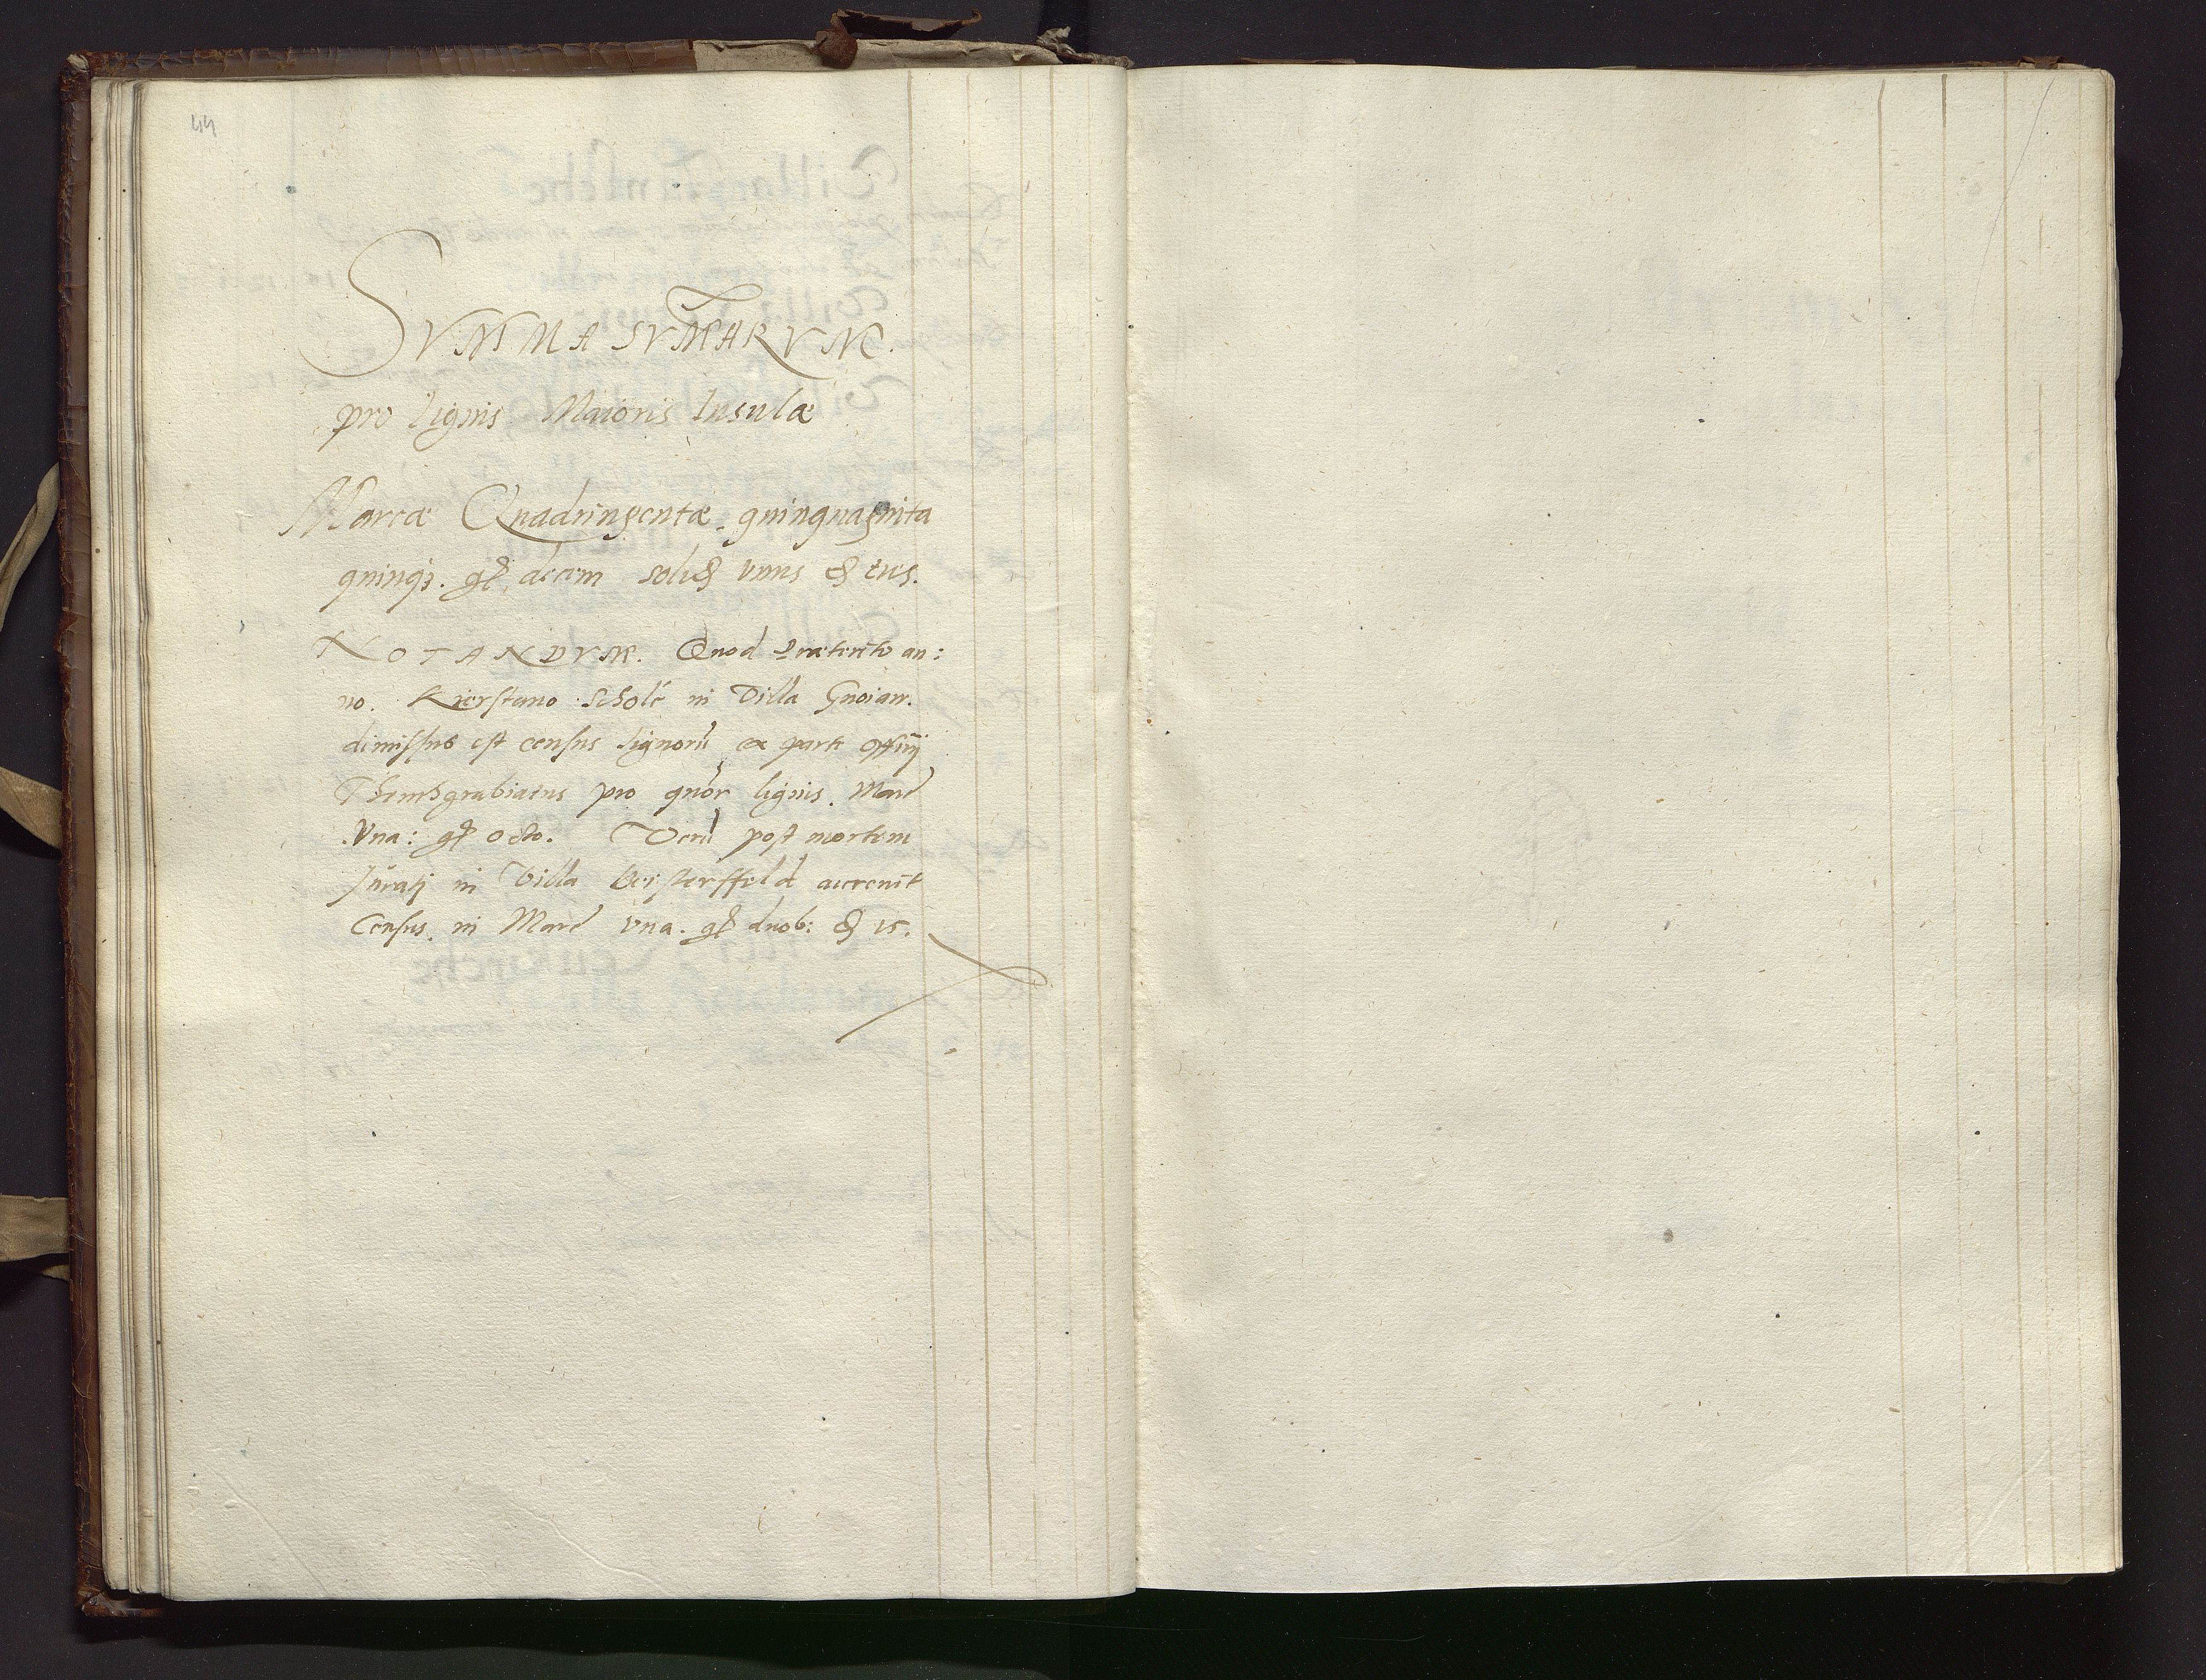 44
SVMMA SVMARVM.
pro lignis Maioris Insulæ
Marcæ Quadringentæ quinquaginta
quinqз. gß decem solid vnus & eius.
NOTANDVM. Quod præterito an:
no. Kierstano Scholc in Villa Gnoian.
dimissus est census lignorū ex parte officij
pro quōr lignis. Marc
Vna: gß octo. Verū post mortem
Jurati in Villa Beisterffeld accreuit
Census. in Marc vna. gß duob: & 15.